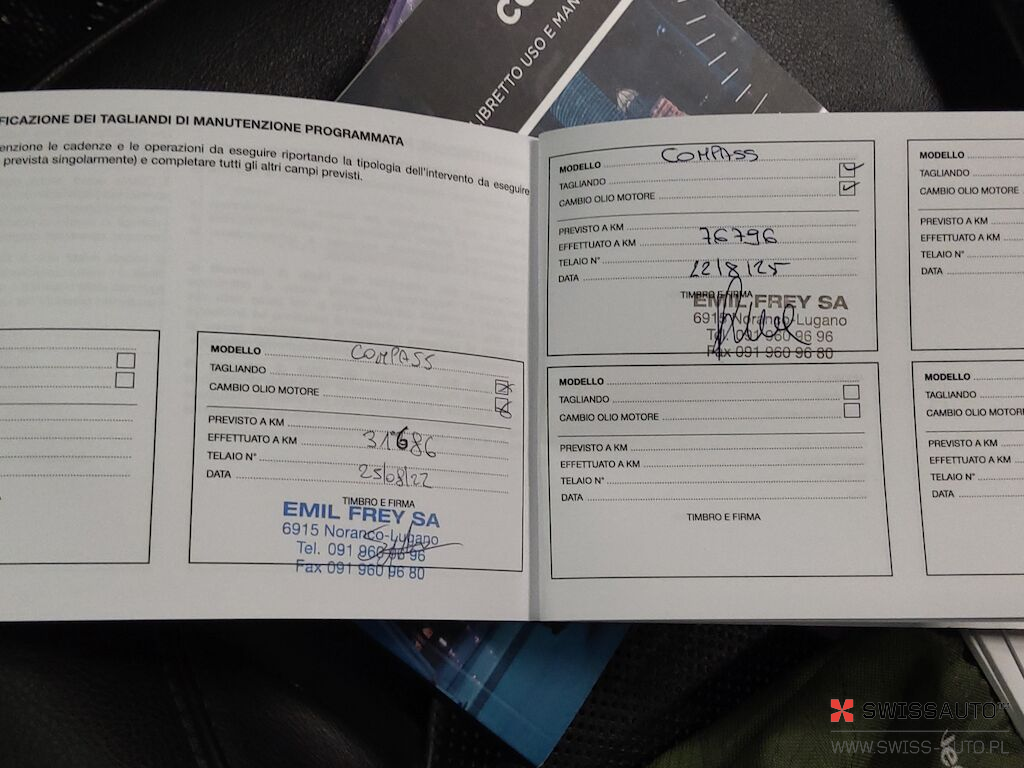 CO
LIBRETTO USO E MAN
FICAZIONE DEI TAGLIANDI DI MANUTENZIONE PROGRAMMATA
enzione le cadenze e le operazioni da eseguire riportando la tipologia dell'intervento da eseguire
prevista singolarmente) e completare tutti gli altri campi previsti.
MODELLO COMPASS
TAGLIANDO
CAMBIO OLIO MOTORE
PREVISTO A KM
EFFETTUATO A KM 31686
TELAIO N°
DATA 25/08/22
TIMBRO E FIRMA
EMIL FREY SA
6915 Noranco-Lugano
Tel. 091 960 96 96
Fax 091 960 96 80
MODELLO COMPASS
TAGLIANDO
CAMBIO OLIO MOTORE
PREVISTO A KM
EFFETTUATO A KM 76796
TELAIO N°
DATA 22/8/25
TIMBRO E FIRMA
EMIL FREY SA
6915 Noranco-Lugano
Tel. 091 960 96 96
Fax 091 960 96 80
MODELLO
TAGLIANDO
CAMBIO OLIO MOTORE
PREVISTO A KM
EFFETTUATO A KM
TELAIO N°
DATA
TIMBRO E FIRMA
MODELLO
TAGLIANDO
CAMBIO OLIO MOTORE
PREVISTO A KM
EFFETTUATO A KM
TELAIO N°
DATA
MODELLO
TAGLIANDO
CAMBIO OLIO MOTOR
PREVISTO A KM
EFFETTUATO A KM
TELAIO N°
DATA
SWISSAUTO
WWW.SWISS-AUTO.PL